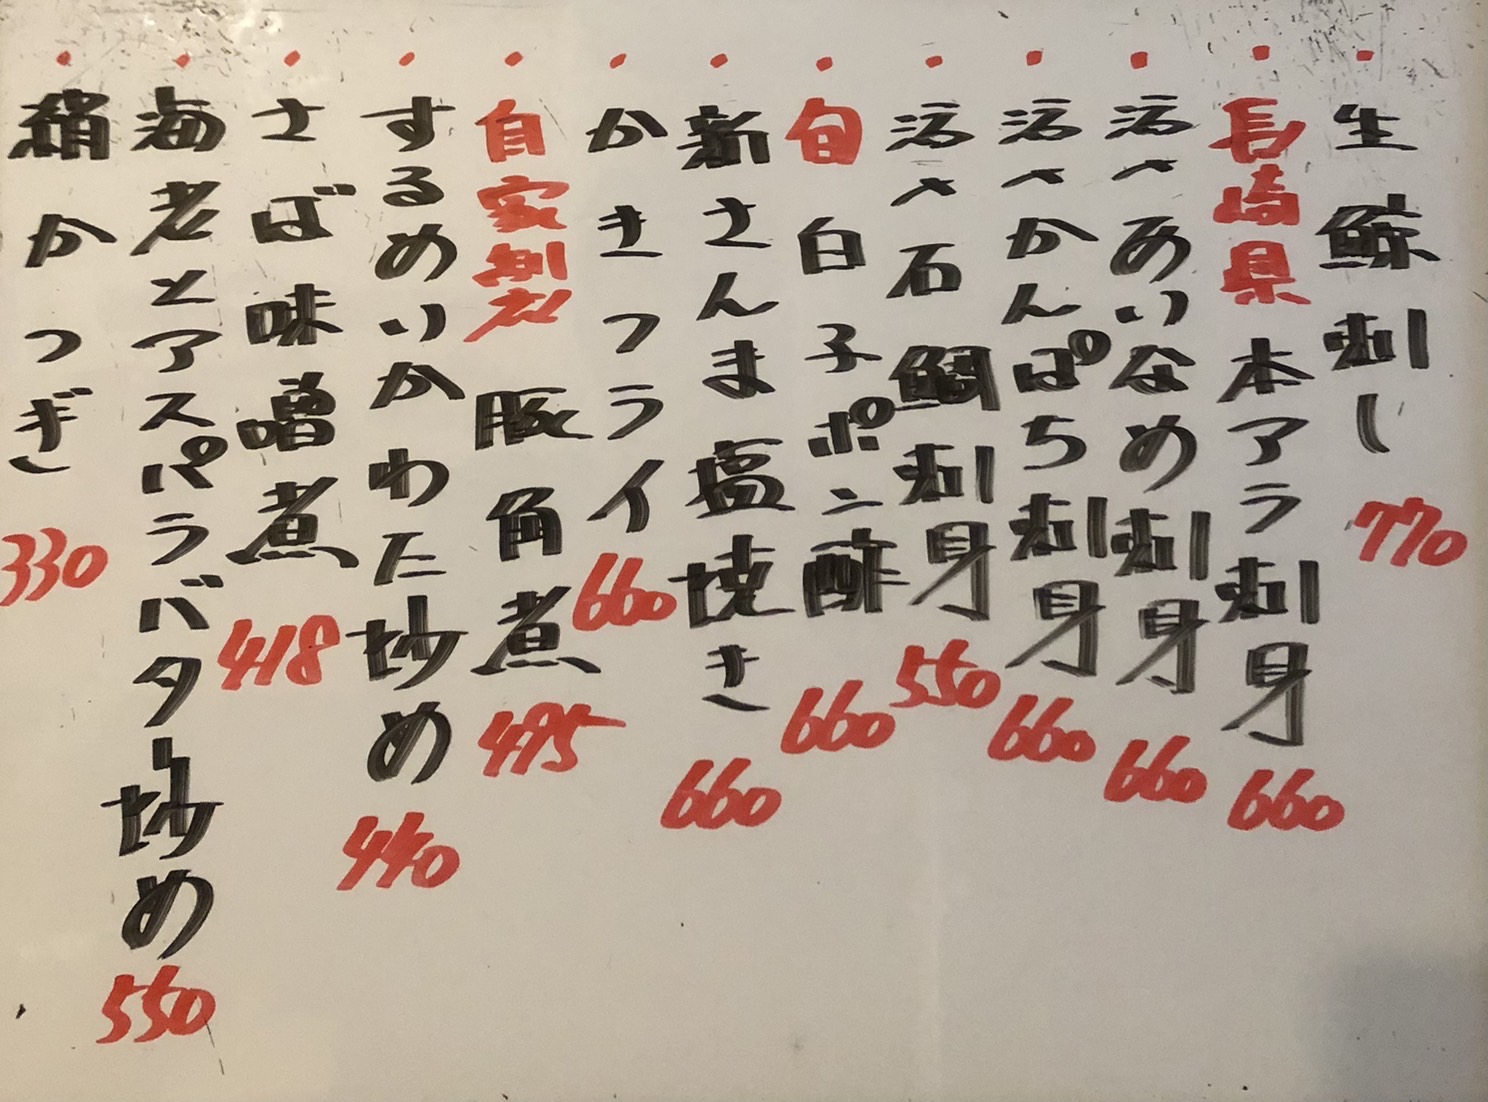 ・生鯨刺し 770
・長崎県 本アラ刺身 660
・活〆あいなめ刺身 660
・活〆かんぱち刺身 660
・活〆石鯛刺身 550
・旬 白子ポン酢 660
・新さんま塩焼き 660
・かきフライ 660
・自家製 豚角煮 495
・するめいかわた炒め 440
・さば味噌煮 418
・海老とアスパラバター炒め 550
・絹かつぎ 330